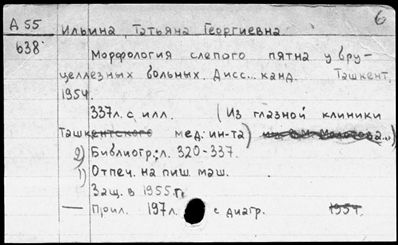 6
А 55
638
Ильина, Татьяна Георгиевна
Морфология слепого пятна у бру-
целлезных больных. Дисс... канд. Ташкент,
1954.
337л. с илл. (Из глазной клиники
Ташкентского мед. ин-та) им. В.М. Молотова...)
2) Библиогр.: л. 320-337.
1) Отпеч. на пиш. маш.
Защ. в 1955 г.
— Прил. 197л. с диагр. 1954.